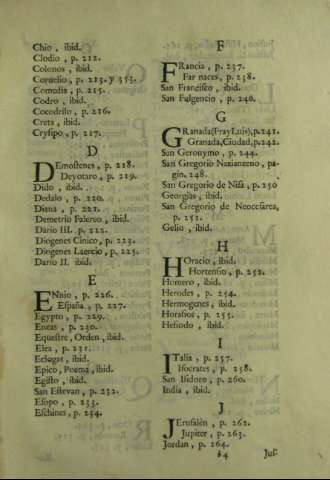 Chio, ibid.
Clodio, p. 212.
Colonos, ibid.
Cornelio, p. 213. y 353.
Comedia, p. 215.
Codro, ibid.
Cocodrilo, p. 216.
Creta, ibid.
Crysipo, p. 217.
D
DEmostenes, p. 218.
Deyotaro, p. 219.
Dido, ibid.
Dedalo, p. 220.
Diana, p. 221.
Demetrio Falereo, ibid.
Dario III. p. 222.
Diogenes Cinico, p. 223.
Diogenes Laercio, p. 225.
Dario II. ibid.
E
ENnio, p. 226.
España, p. 227.
Egypto, p. 229.
Eneas, p. 230.
Equestre, Orden, ibid.
Elea, p. 231.
Eclogas, ibid.
Epico, Poema, ibid.
Egisto, ibid.
San Estevan, p. 232.
Esopo, p. 233.
Eschines, p. 234.
F
FRancia, p. 237.
Farnaces, p. 238.
San Francisco, ibid.
San Fulgencio, p. 240.
G
GRanada(Fray Luis), p.241.
Granada, Ciudad, p.242.
San Geronymo, p. 244.
San Gregorio Nazianzeno, pa-
gin. 248.
San Gregorio de Nisa, p. 250
Georgias, ibid.
San Gregorio de Neocesarea,
p. 251.
Gelio, ibid.
H
HOracio, ibid.
Hortensio, p. 252.
Homero, ibid.
Herodes, p. 254.
Hermogenes, ibid.
Horasios, p. 255.
Hesiodo, ibid.
I
ITalia, p. 257.
Isocrates, p. 258.
San Isidoro, p. 260.
India, ibid.
J
JErusalén, p. 262.
Jupiter, p. 263.
Jordan, p. 264.
64 Jus.